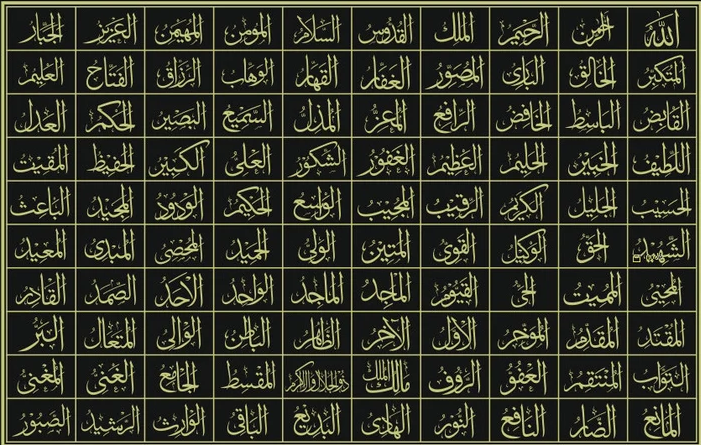 الله الرحمن الرحيم الملك القدوس السلام المؤمن المهيمن العزيز الجبار
المتكبر الخالق البارئ المصور الغفار القهار الوهاب الرزاق الفتاح العليم
القابض الباسط الخافض الرافع المعز المذل السميع البصير الحكم العدل
اللطيف الخبير الحليم العظيم الغفور الشكور العلي الكبير الحفيظ المقيت
الحسيب الجليل الكريم الرقيب المجيب الواسع الحكيم الودود المجيد الباعث
الشهيد الحق الوكيل القوي المتين الولي الحميد المحصي المبدئ المعيد
المحيي المميت الحي القيوم الماجد الماجد الواحد الاحد الصمد القادر
المقتدر المقدم المؤخر الأول الآخر الظاهر الباطن الوالي المتعال البر
التواب المنتقم العفو الرؤف مالك الملك ذو الجلال والاكرام المقسط الجامع الغني المغني
المانع الضار النافع النور الهادي البديع الباقي الوارث الرشيد الصبور